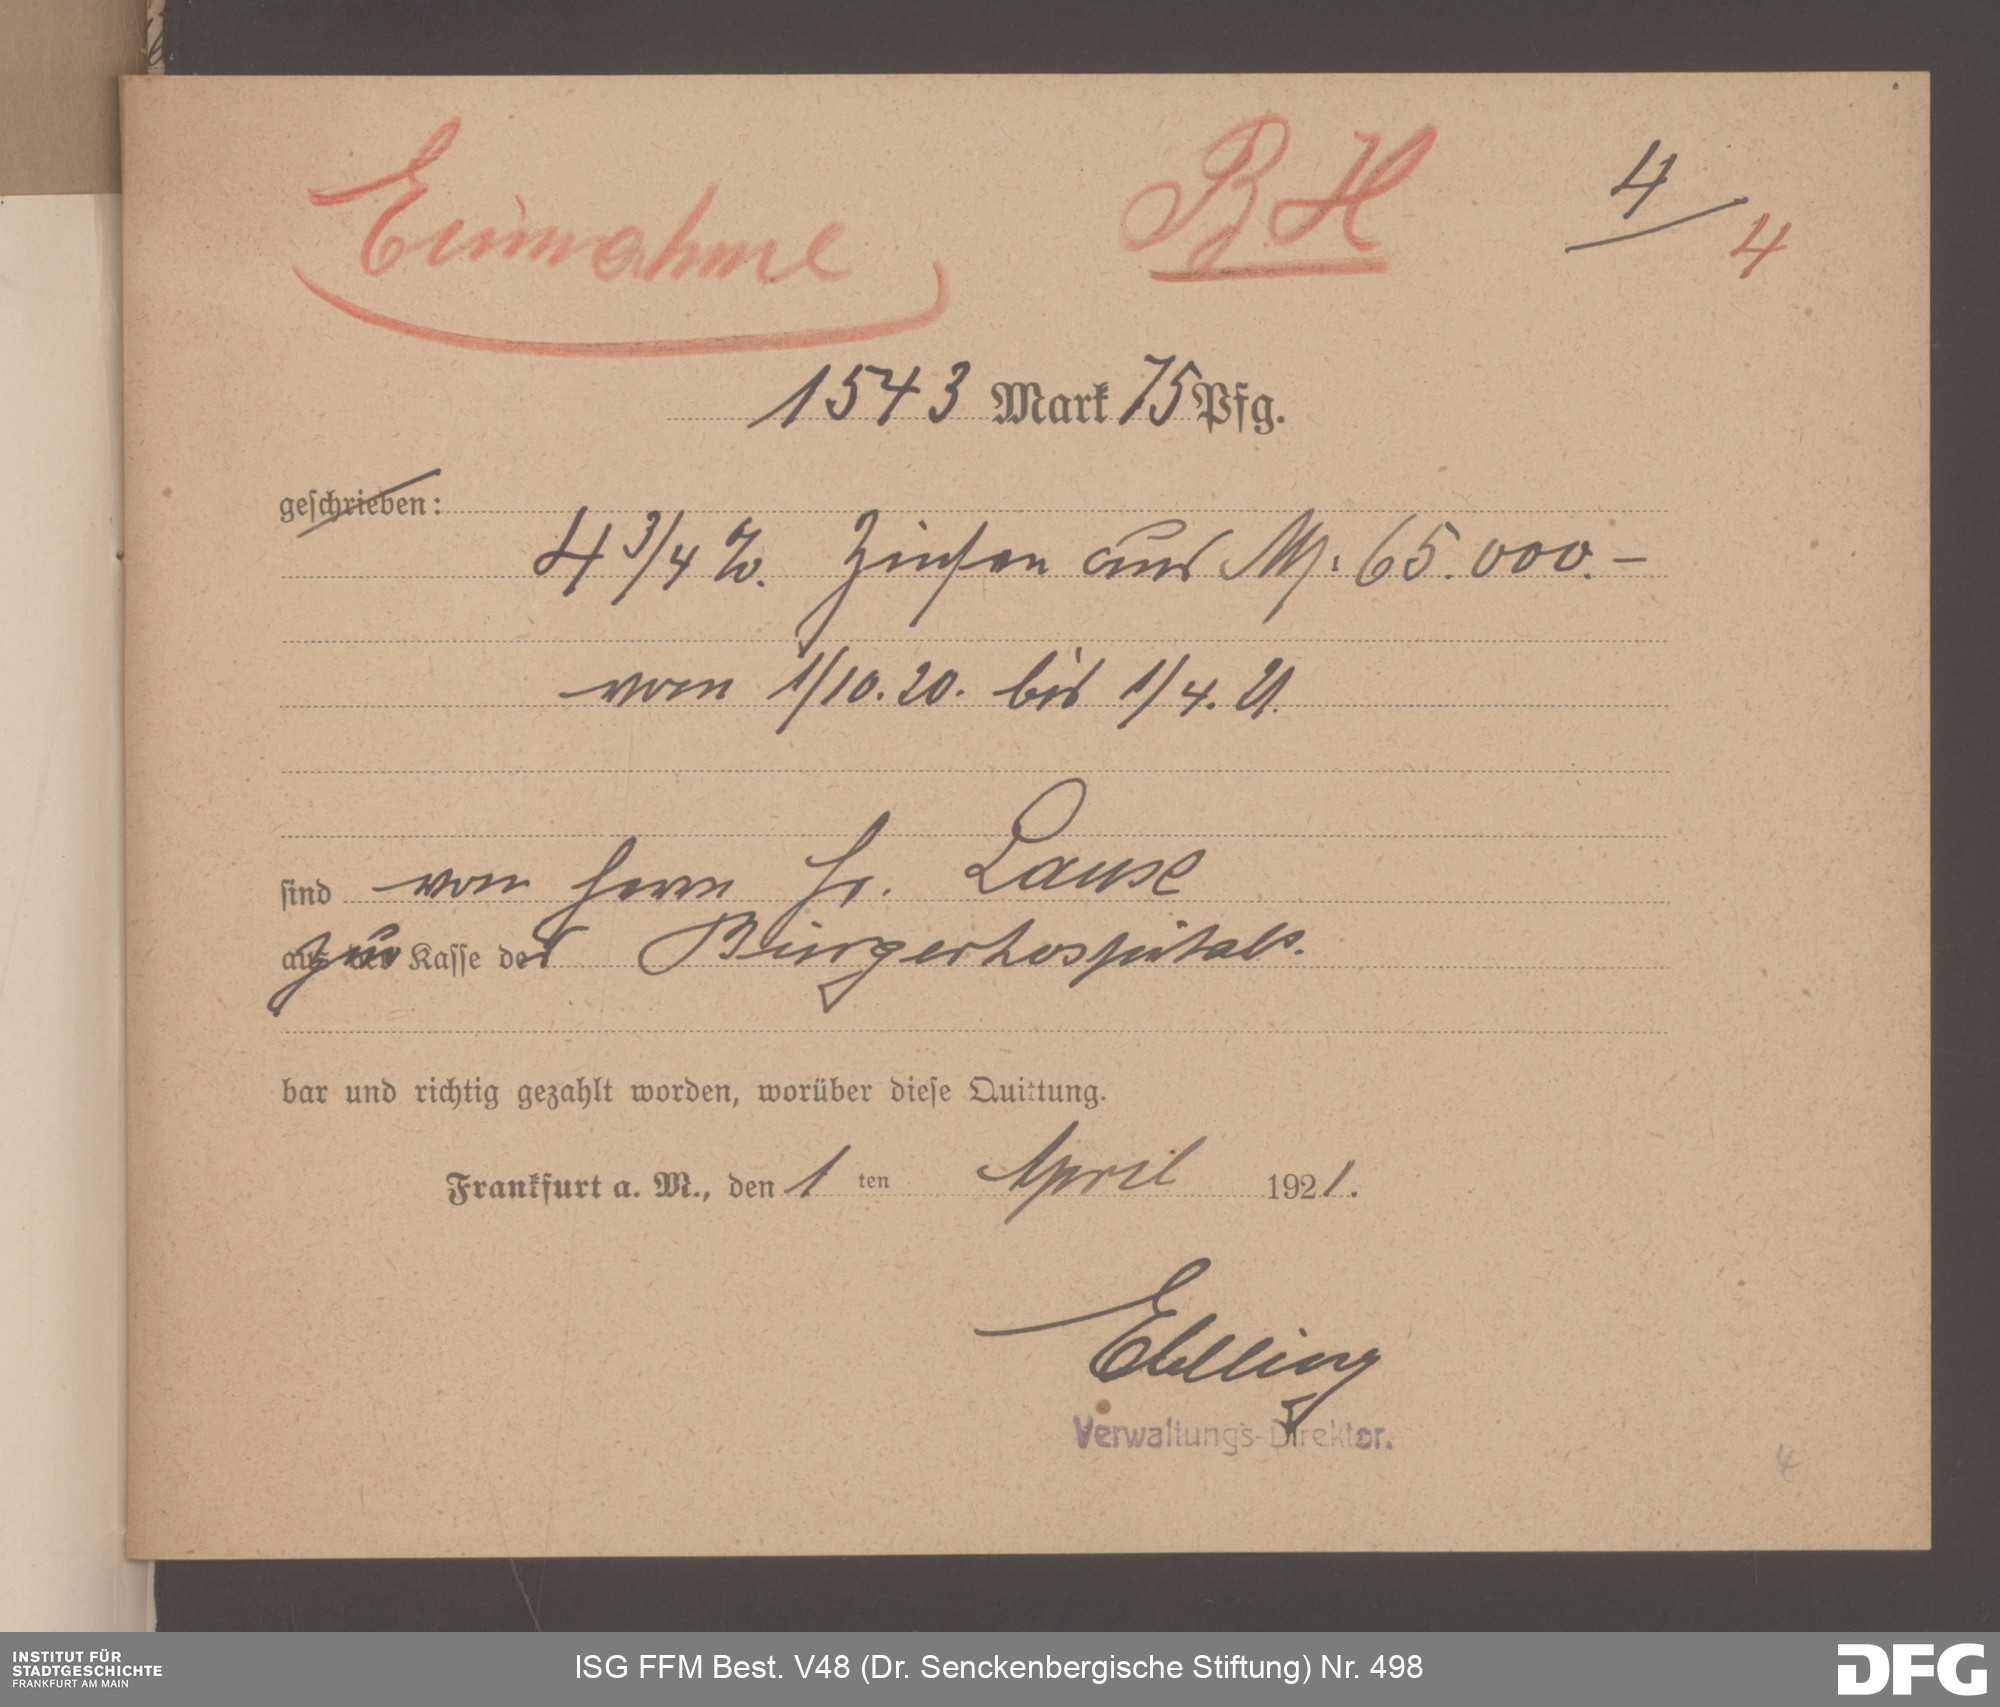 Einnahme BH 4
4
1543 Mark 75 Pfg.
geschrieben:
4 3/4 %. Zinsen aus M. 65.000.–
vom 1/10.20. bis 1/4.21.
sind von Herrn Fr. Lause
zur Kasse des Bürgerhospitals.
bar und richtig gezahlt worden, worüber diese Quittung.
Frankfurt a. M., den 1 ten April 1921.
Ebeling
Verwaltungs-Direktor.
4
INSTITUT FÜR
STADTGESCHICHTE
FRANKFURT AM MAIN
ISG FFM Best. V48 (Dr. Senckenbergische Stiftung) Nr. 498
DFG